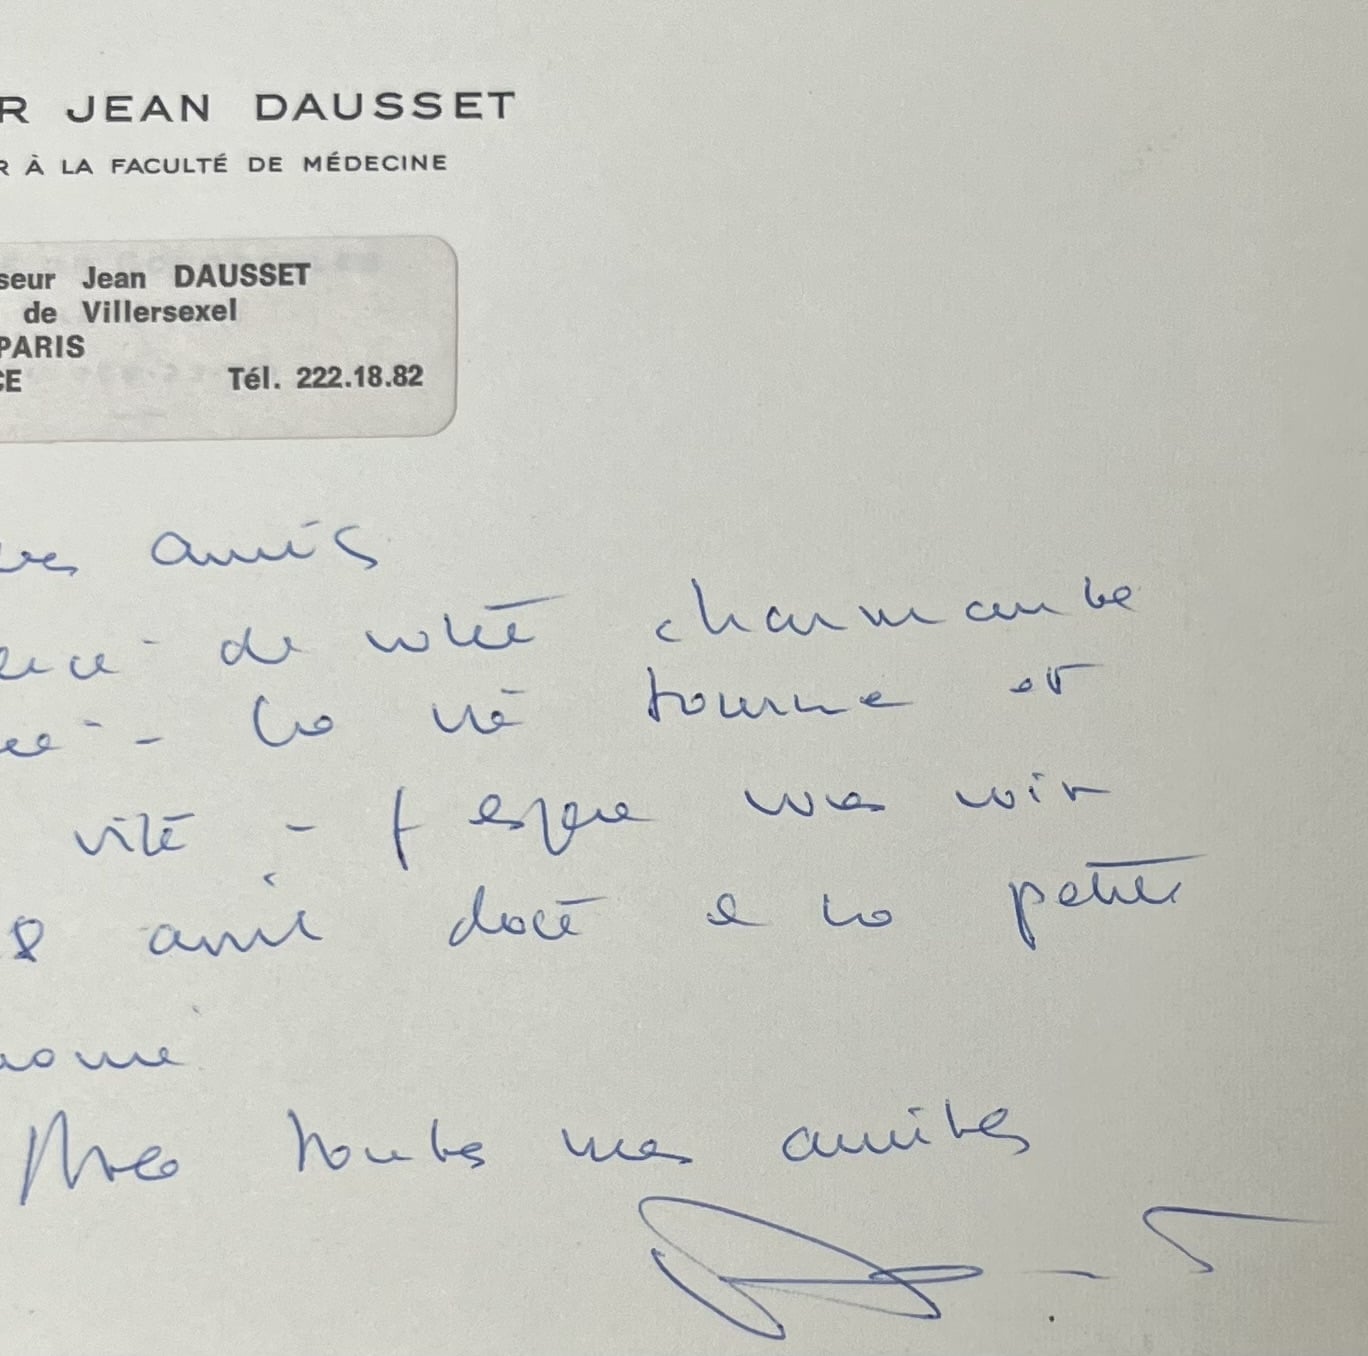 R JEAN DAUSSET
R À LA FACULTÉ DE MÉDECINE
seur Jean DAUSSET
de Villersexel
PARIS
CE Tél. 222.18.82
amis
de votre charmante
- La vie tourne et
vite - J espère vous voir
8 avril date de la petite
Avec toutes mes amitiés